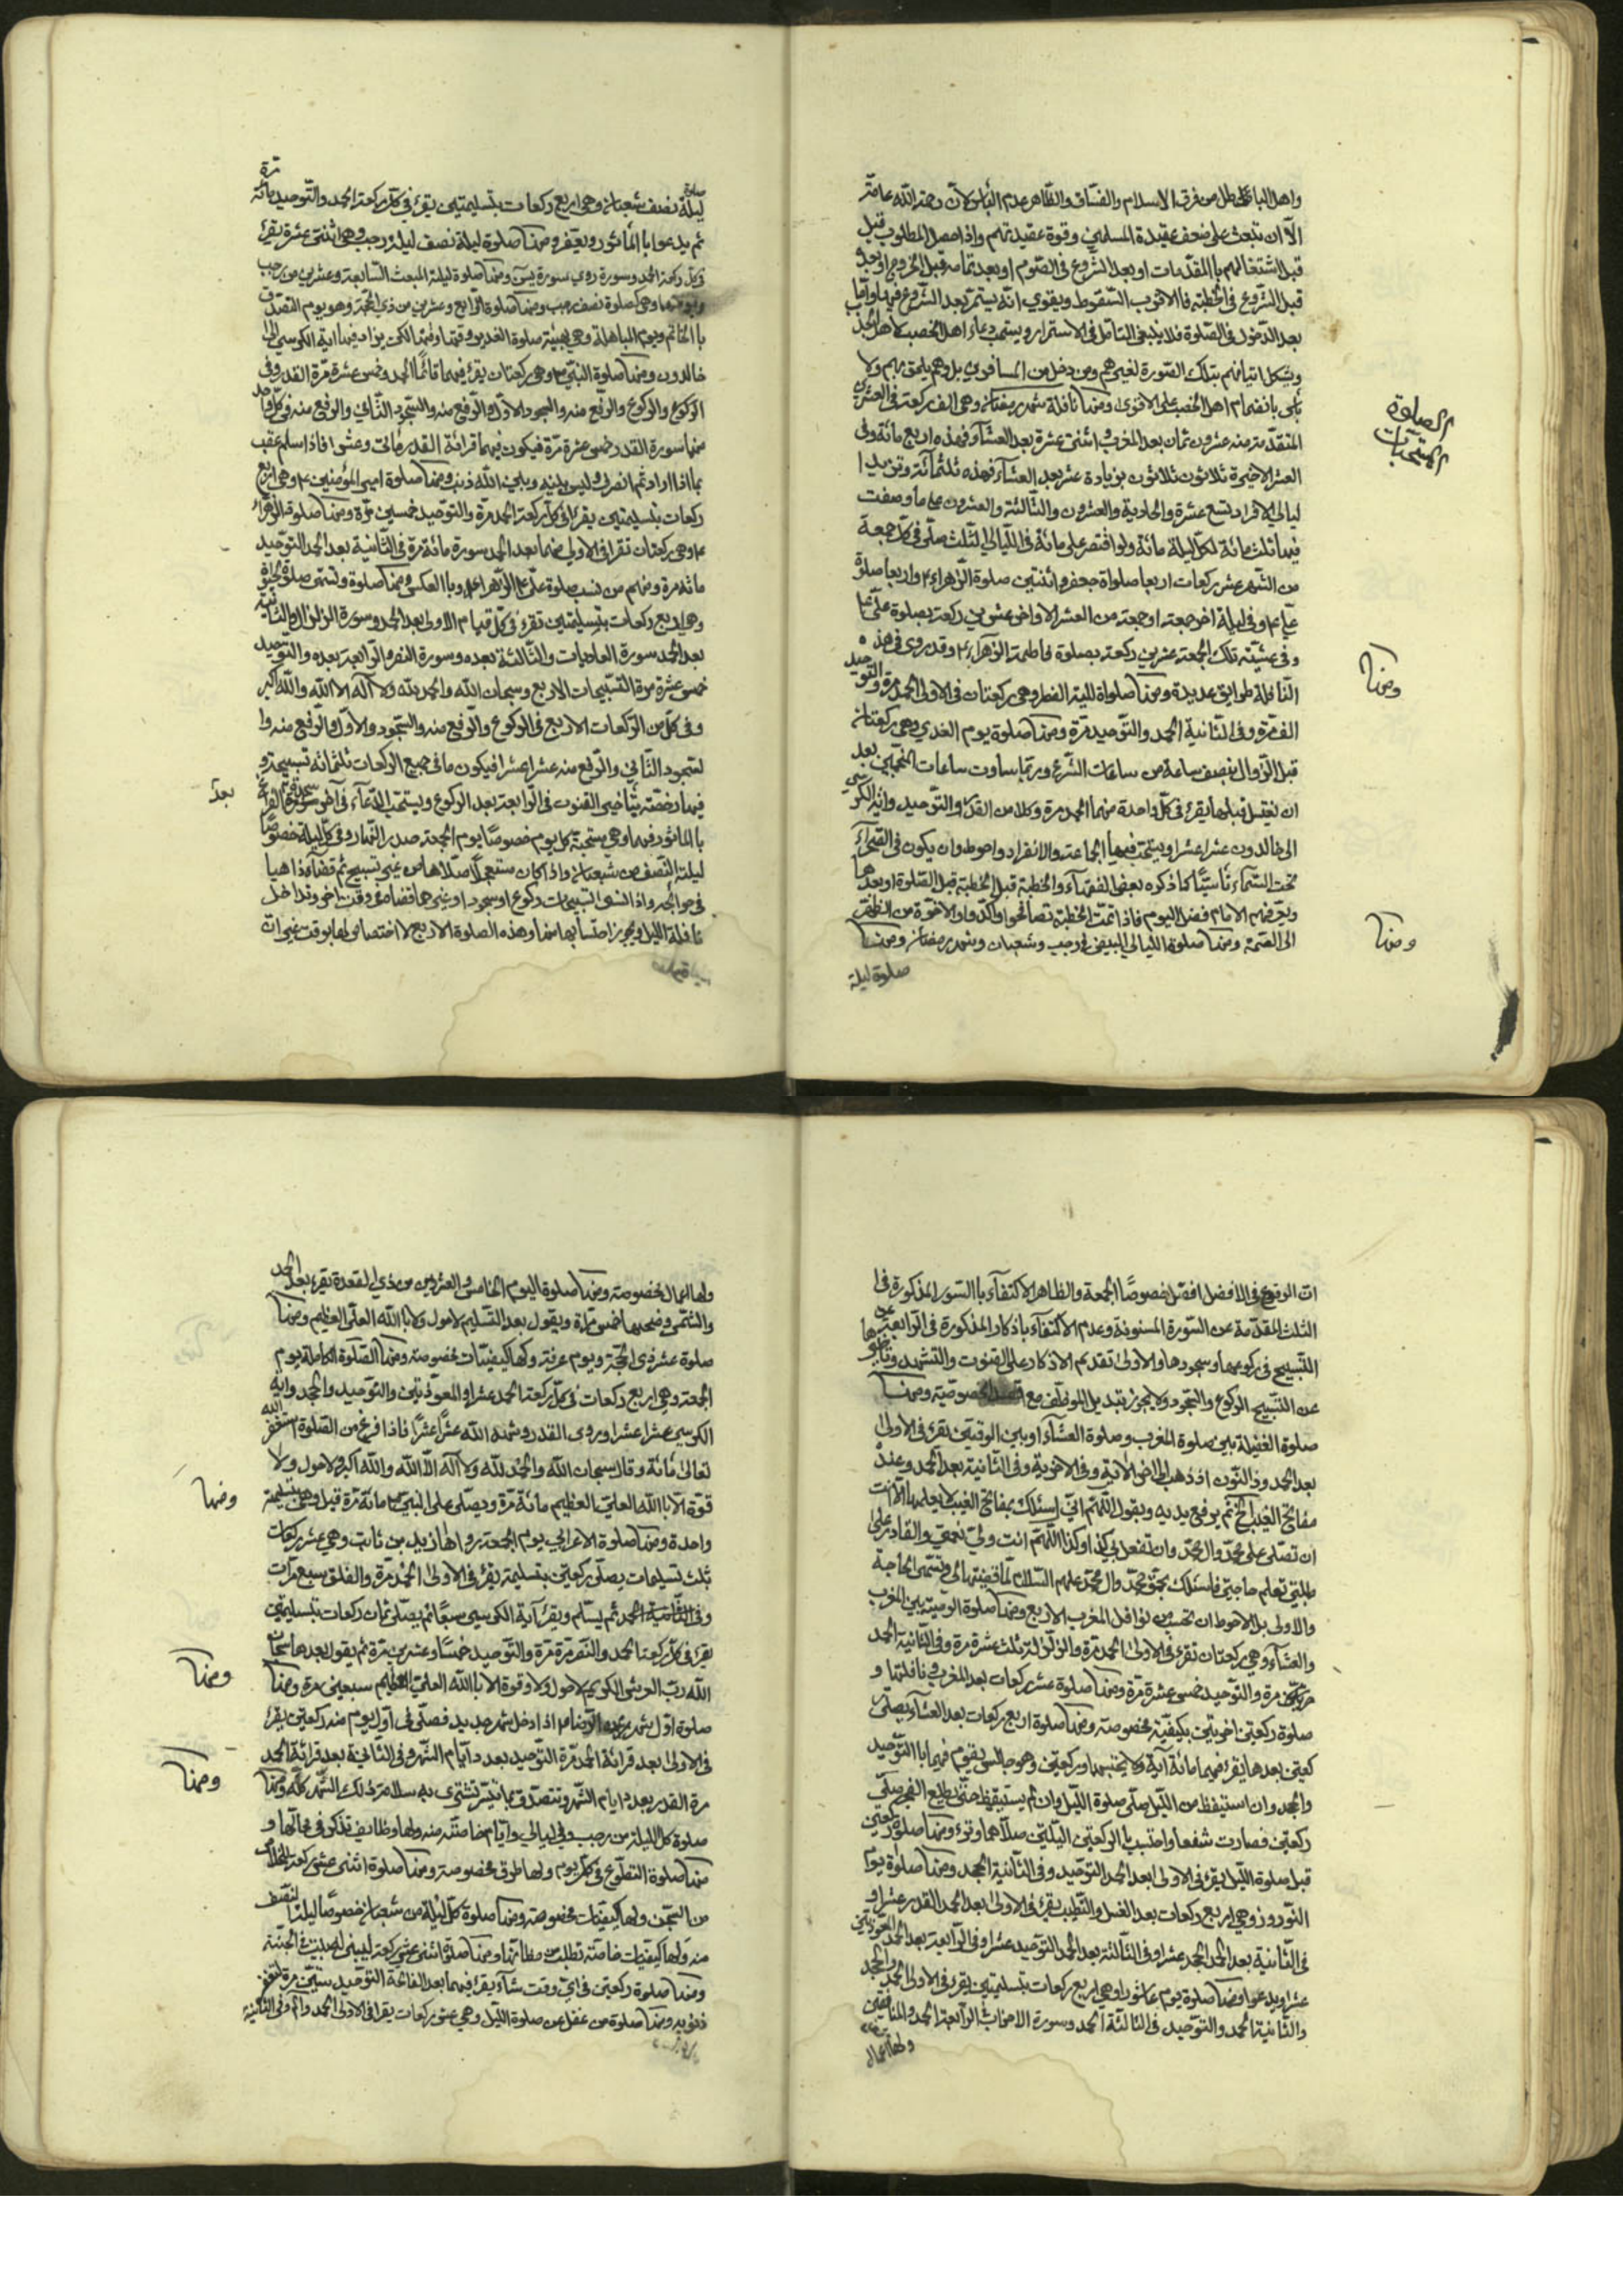 واهل الباطل من فرق الاسلام والفساق والظاهر عدم الباس لان رحمة الله عامة
الا ان تبعث على ضعف عقيدة المسلمين وقوة عقيدتهم واذا حصل المطلوب قبل
قبل اشتغالهم بالمقدمات او بعد الشروع في الصوم او بعد تمامه قبل الخروج او بعده
قبل الشروع في الخطبة فالاقرب السقوط ويقوي انه يستمر بعد الشروع فيها واما
بعد الدخول في الصلوة فلا ينبغي التامل في الاستمرار ويستحب دعاء اهل الخصب لاهل الجدب
ويشكل اتيانهم بتلك الصورة لغيرهم ومن دخل من المسافرين بلادهم يلحق بهم ولا
باس بانضمام اهل الخصب على الاقوى ومنها نافلة شهر رمضان وهي الف ركعة في العشرين
الصلوة
المستحبات
المتقدمة منه عشرون ثمان بعد المغرب واثنتى عشرة بعد العشآء فهذه اربع مائة وفي
العشر الاخيرة ثلاثون ثلاثون بزيادة عشر بعد العشآء فهذه ثلثمائة وتزيد
ليالي الافراد تسع عشرة والحادية والعشرون والثالثة والعشرون على ما وصفت
فيها ثلث مائة لكل ليلة مائة ولو اقتصر على مائة في الليالي الثلث صلى في كل جمعة
من الشهر عشر ركعات اربعا صلواة جعفر واثنتين صلوة الزهراء ع واربعا صلوة
علي ع وفي ليلة اخر جمعة او جمعة من العشر الاواخر عشرين ركعة بصلوة علي ع
وفي عشية تلك الجمعة عشرين ركعة بصلوة فاطمة الزهراء ع وقد روى في هذه
ومنها
النافلة طرايق عديدة ومنها صلواة لليلة الفطر وهي ركعتان في الاولى الحمد مرة والتوحيد
الف مرة وفي الثانية الحمد والتوحيد مرة ومنها صلوة يوم الغدير وهي ركعتان
قبل الزوال بنصف ساعة من ساعات الشرع وربما ساوت ساعات المنجمين بعد
ان يغتسل قبلها يقرء في كل واحدة منهما الحمد مرة وكلا من القدر والتوحيد واية الكرسي
الى خالدون عشرا عشرا ويستحب فيها الجماعة والانفراد واحوط وان يكون في الصحراء
تحت السماء تأسيًا كما ذكره بعض الفقهاء والخطبة قبل الخطبة قبل الصلوة او بعدها
ويعرفهم الامام فضل اليوم فاذا تمت الخطبة تصافحوا واكدوا الاخوة من الظهر
ومنها
الى العتمة ومنها صلوة الليالي البيض في رجب وشعبان وشهر رمضان ومنها
صلوة ليلة
ليلة نصف شعبان وهي اربع ركعات بتسليمتين يقرء في كل ركعة الحمد والتوحيد مائة مرة
ثم يدعوا بالمأثور ويعفر ومنها صلوة ليلة نصف ليلة رجب وهي اثنتى عشرة يقرء
في كل ركعة الحمد وسورة روي سورة يس ومنها صلوة ليلة المبعث السابعة وعشرين من رجب
ويومها وهي كصلوة نصف رجب ومنها صلوة الرابع وعشرين من ذي الحجة وهو يوم التصدق
بالخاتم ويوم المباهلة وهي بهيئة صلوة الغدير وقتها وفيها لكن يزاد فيها اية الكرسي الى
خالدون ومنها صلوة النبي ص وهي ركعتان يقرء فيهما قائمًا الحمد وخمس عشرة مرة القدر وفي
الركوع والركوع والرفع منه والسجود الاول والرفع منه والسجود الثاني والرفع منه في كل واحد
منها سورة القدر خمس عشرة مرة فيكون فيهما قرائة القدر مائتى وعشرا فاذا سلم عقب
بما اراد ثم انصرف وليس بينه وبين الله ذنب ومنها صلوة امير المؤمنين ع وهي اربع
ركعات بتسليمتين يقرء في كل ركعة الحمد مرة والتوحيد خمسين مرة ومنها صلوة الزهراء
ع وهي ركعتان تقرا في الاولى منهما بعد الحمد سورة مائة مرة وفي الثانية بعد الحمد التوحيد
مائة مرة ومنهم من نسب صلوة علي ع للزهراء ع وبالعكس ومنها صلوة وتسمى صلوة الحبوة
وهي اربع ركعات بتسليمتين تقرء في كل قيام الاولى بعد الحمد وسورة الزلزال والثانية
بعد الحمد سورة العاديات والثالثة بعده وسورة النصر والرابعة بعده والتوحيد
خمس عشرة مرة التسبيحات الاربع وسبحان الله والحمد لله ولا اله الا الله والله اكبر
وفي كل من الركعات الاربع في الركوع والرفع منه والسجود والاول والرفع منه وا
لسجود الثاني والرفع منه عشرا عشرا فيكون ما في جميع الركعات ثلثمائة تسبيحة و
بعد
بالماثور فيها وهي مستحبة كل يوم خصوصًا يوم الجمعة صدر النهار وفي كل ليلة خصوصًا
ليلة النصف من شعبان واذا كان مستعجلًا صلاها من غير تسبيح ثم قضاه ذاهبا
في حوائجه واذا نسى التسبيحات ركوع او سجود او غيرهما قضاه في وقت اخر وتداخل
نافلة الليل ويجوز احتسابها منها وهذه الصلوة الاربع لا اختصاص لها بوقت غير ان
ان الوقوع في الافضل افضل خصوصًا الجمعة والظاهر الاكتفآء بالسور المذكورة في
الثلث المقدمة عن السورة المسنونة وعدم الاكتفآء باذكار المذكورة في الرابعة عن
التسبيح في ركوعها وسجودها والاولى تقديم الاذكار على القنوت والتشهد وتأخيرها
عن التسبيح الركوع والسجود ولا يجوز تبديل الموظف مع قصد الخصوصية ومنها
صلوة الغفيلة بين صلوة المغرب وصلوة العشآء او بين الوقتين يقرء في الاولى
بعد الحمد وذا النون اذ ذهب الى اخر الاية وفي الاخرية وفي الثانية بعد الحمد وعنده
مفاتح الغيب الخ ثم يرفع يديه ويقول اللهم اني اسئلك بمفاتح الغيب لا يعلمها الا انت
ان تصلى على محمد وال محمد وان تفعل بي كذا وكذا اللهم انت ولي نعمتي والقادر على
طلبتي تعلم حاجتي فاسئلك بحق محمد وال محمد عليهم السلام لما قضيتها لي وتسمى الحاجة
والاولى بل الاحوط ان تحسب من نوافل المغرب الاربع ومنها صلوة الوصية بين المغرب
والعشآء وهي ركعتان تقرء في الاولى الحمد مرة والزلزلة ثلث عشرة مرة وفي الثانية الحمد
مرة والتوحيد خمس عشرة مرة ومنها صلوة عشر ركعات بعد المغرب في نافلتها و
صلوة ركعتين اخريتين بكيفية مخصوصة ومنها صلوة اربع ركعات بعد العشآء يصلى
كعتين بعدها يقرء فيهما مائة آية ولا يحتسبها وركعتين وهو جالس يقوم فيهما بالتوحيد
والجحد وان استيقظ من الليل صلى صلوة الليل وان لم يستيقظ حتى يطلع الفجر صلى
ركعتين فصارت شفعا واحتسب بالركعتين اليلتين صلاهما وتر ومنها صلوة ركعتين
قبل صلوة الليل يقرء في الاولى بعد الحمد التوحيد وفي الثانية الجحد ومنها صلوة يوم
النوروز وهي اربع ركعات بعد الغسل والتطيب يقرء في الاولى بعد الحمد القدر عشرا و
في الثانية بعد الحمد الجحد عشرا وفي الثالثة بعد الحمد التوحيد عشرا وفي الرابعة بعد الحمد المعوذتين
عشرا ويدعوا ومنها صلوة يوم عاشورا وهي اربع ركعات بتسليمتين يقرء في الاولى الحمد والجحد
والثانية الحمد والتوحيد في الثالثة الحمد وسورة الاحزاب الرابعة الحمد والمنافقين
ولها اعمال
ولها اعمال مخصوصة ومنها صلوة اليوم الخامس والعشرين من ذي القعدة تقرء بعد الحمد
والشمس وضحيها خمس مرة ويقول بعد التسليم لا حول ولا بالله العلي العظيم ومنها
صلوة عشر ذي الحجة ويوم عرفة ولها كيفيات مخصوصة ومنها الصلوة الكاملة يوم
الجمعة وهي اربع ركعات في كل ركعة الحمد عشرا والمعوذتين والتوحيد والجحد واية
الكرسي عشرا عشرا وروى القدر وشهد الله عشرًا عشرًا فاذا فرغ من الصلوة استغفر الله
تعالى مائة وقال سبحان الله والحمد لله ولا اله الا الله والله اكبر ولا حول ولا
ومنها
قوة الا بالله العلي العظيم مائة مرة ويصلى على النبي ص مائة مرة قيل وهي بتسليمة
واحدة ومنها صلوة الاعرابي يوم الجمعة رواها زيد بن ثابت وهي عشر ركعات
ثلث تسليمات يصلى ركعتين بتسليمة يقرء في الاولى الحمد مرة والفلق سبع مرات
وفي الثانية الحمد ثم يسلم ويقرء آية الكرسي سبعًا ثم يصلى ثمان ركعات بتسليمتين
يقرء في كل ركعة الحمد والنصر مرة مرة والتوحيد خمسًا وعشرين مرة ثم يقول بعدها سبحان
ومنها
الله رب العرش الكريم لا حول ولا وقوة الا بالله العلي العظيم سبعين مرة ومنها
صلوة اول شهر اذا دخل شهر جديد فصلى في اول يوم منه ركعتين يقرء
في الاولى بعد قرائة الحمد مرة التوحيد بعدد ايام الشهر وفي الثانية بعد قرائة الحمد
ومنها
مرة القدر بعدد ايام الشهر وتتصدق بما تيسر تشترى به سلامة ذلك الشهر كله ومنها
صلوة كل اليلة من رجب وفي ليالي وايام خاصة منه ولها وظايف تذكر في محالها و
منها صلوة التطوع في كل يوم ولها طرق مخصوصة ومنها صلوة اثنى عشر ركعة للخلاص
من السجن ولها كيفيات مخصوصة ومنها صلوة كل ليلة من شعبان خصوصًا ليلة النصف
منه ولها كيفيات خاصة تطلب من مظانها ومنها صلوة اثنى عشر ركعة ليبنى له بيت في الجنة
ومنها صلوة ركعتين في اي وقت شآء يقرء فيهما بعد الفاتحة التوحيد ستين مرة لتغفر
ذنوبه ومنها صلوة من غفل عن صلوة الليل وهي عشر ركعات يقرا في الاولى الحمد والم وفي الثانية